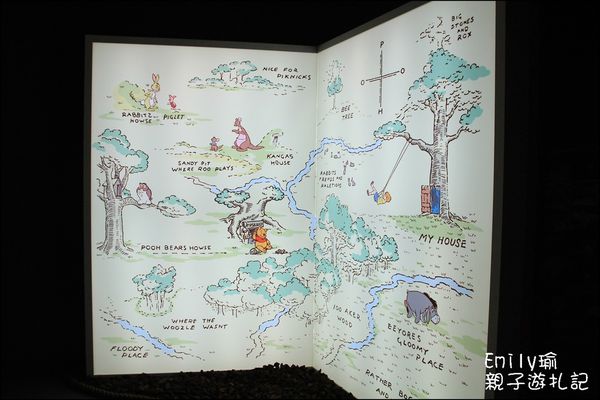 NICE FOR
PIKNICKS
RABBITZ
HOWSE
PIGLET
SANDY PIT
WHERE ROO PLAYS
KANGAS
HOUSE
POOH BEARS HOWSE
WHERE THE
WOOZLE WASNT
FLOODY
PLACE
P
O
O
H
BIG
STONES
AND
ROX
BEE
TREE
RABITS
FRENDS AND
RALETIONS
MY HOUSE
AKER
WOOD
EEYORES
GLOOMY
PLACE
RATHER
AND
Emily瑜
親子遊札記